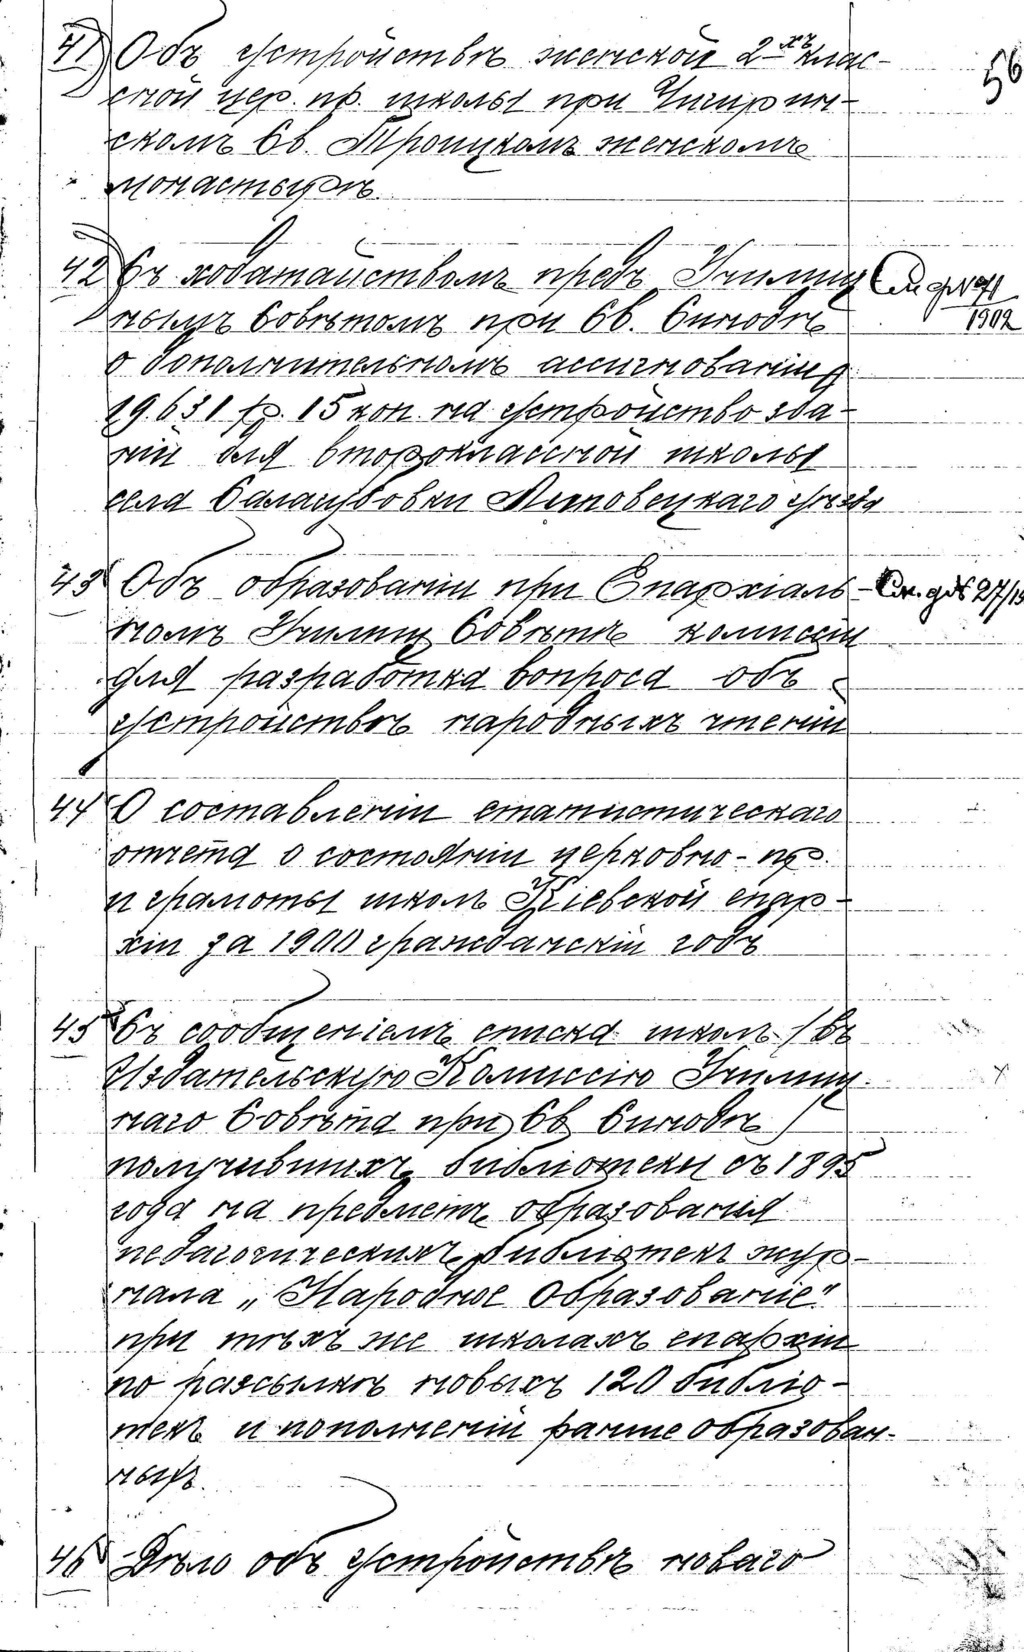 56
41) Объ устройствѣ женской 2-хъ клас-
сной цер. пр. школы при Чигирин-
скомъ Св. Троицкомъ женскомъ
монастырѣ.
42 Съ ходатайствомъ предъ Училищ
нымъ Совѣтомъ при Св. Синодѣ
о дополнительномъ ассигнованіи
19.631 р. 15 коп на устройство зда-
ній для второклассной школы
села Балабовки Липовецкаго уѣзда
См д №71
1902
43 Объ образованіи при Епархіаль-
номъ Училищ Совѣтѣ комиссіи
для разработка вопроса объ
устройствѣ народныхъ чтеній
См. д № 27/19
44 О составленіи статистическаго
отчета о состояніи церковно-пр.
и грамоты школъ Кіевской епар-
хіи за 1900 гражданскій годъ
45 Съ сообщеніемъ списка школъ /въ
Издательскую Коммиссію Училищ
наго Совѣта при Св Синодѣ/
получившихъ библіотеки съ 1895
года на предметъ образованія
педагогическихъ библіотекъ жур-
нала „Народное Образованіе"
при тѣхъ же школахъ епархіи
по разсылкѣ новыхъ 120 библіо-
текъ и пополненій ранѣе образован-
ныхъ.
46 Дѣло объ устройствѣ новаго